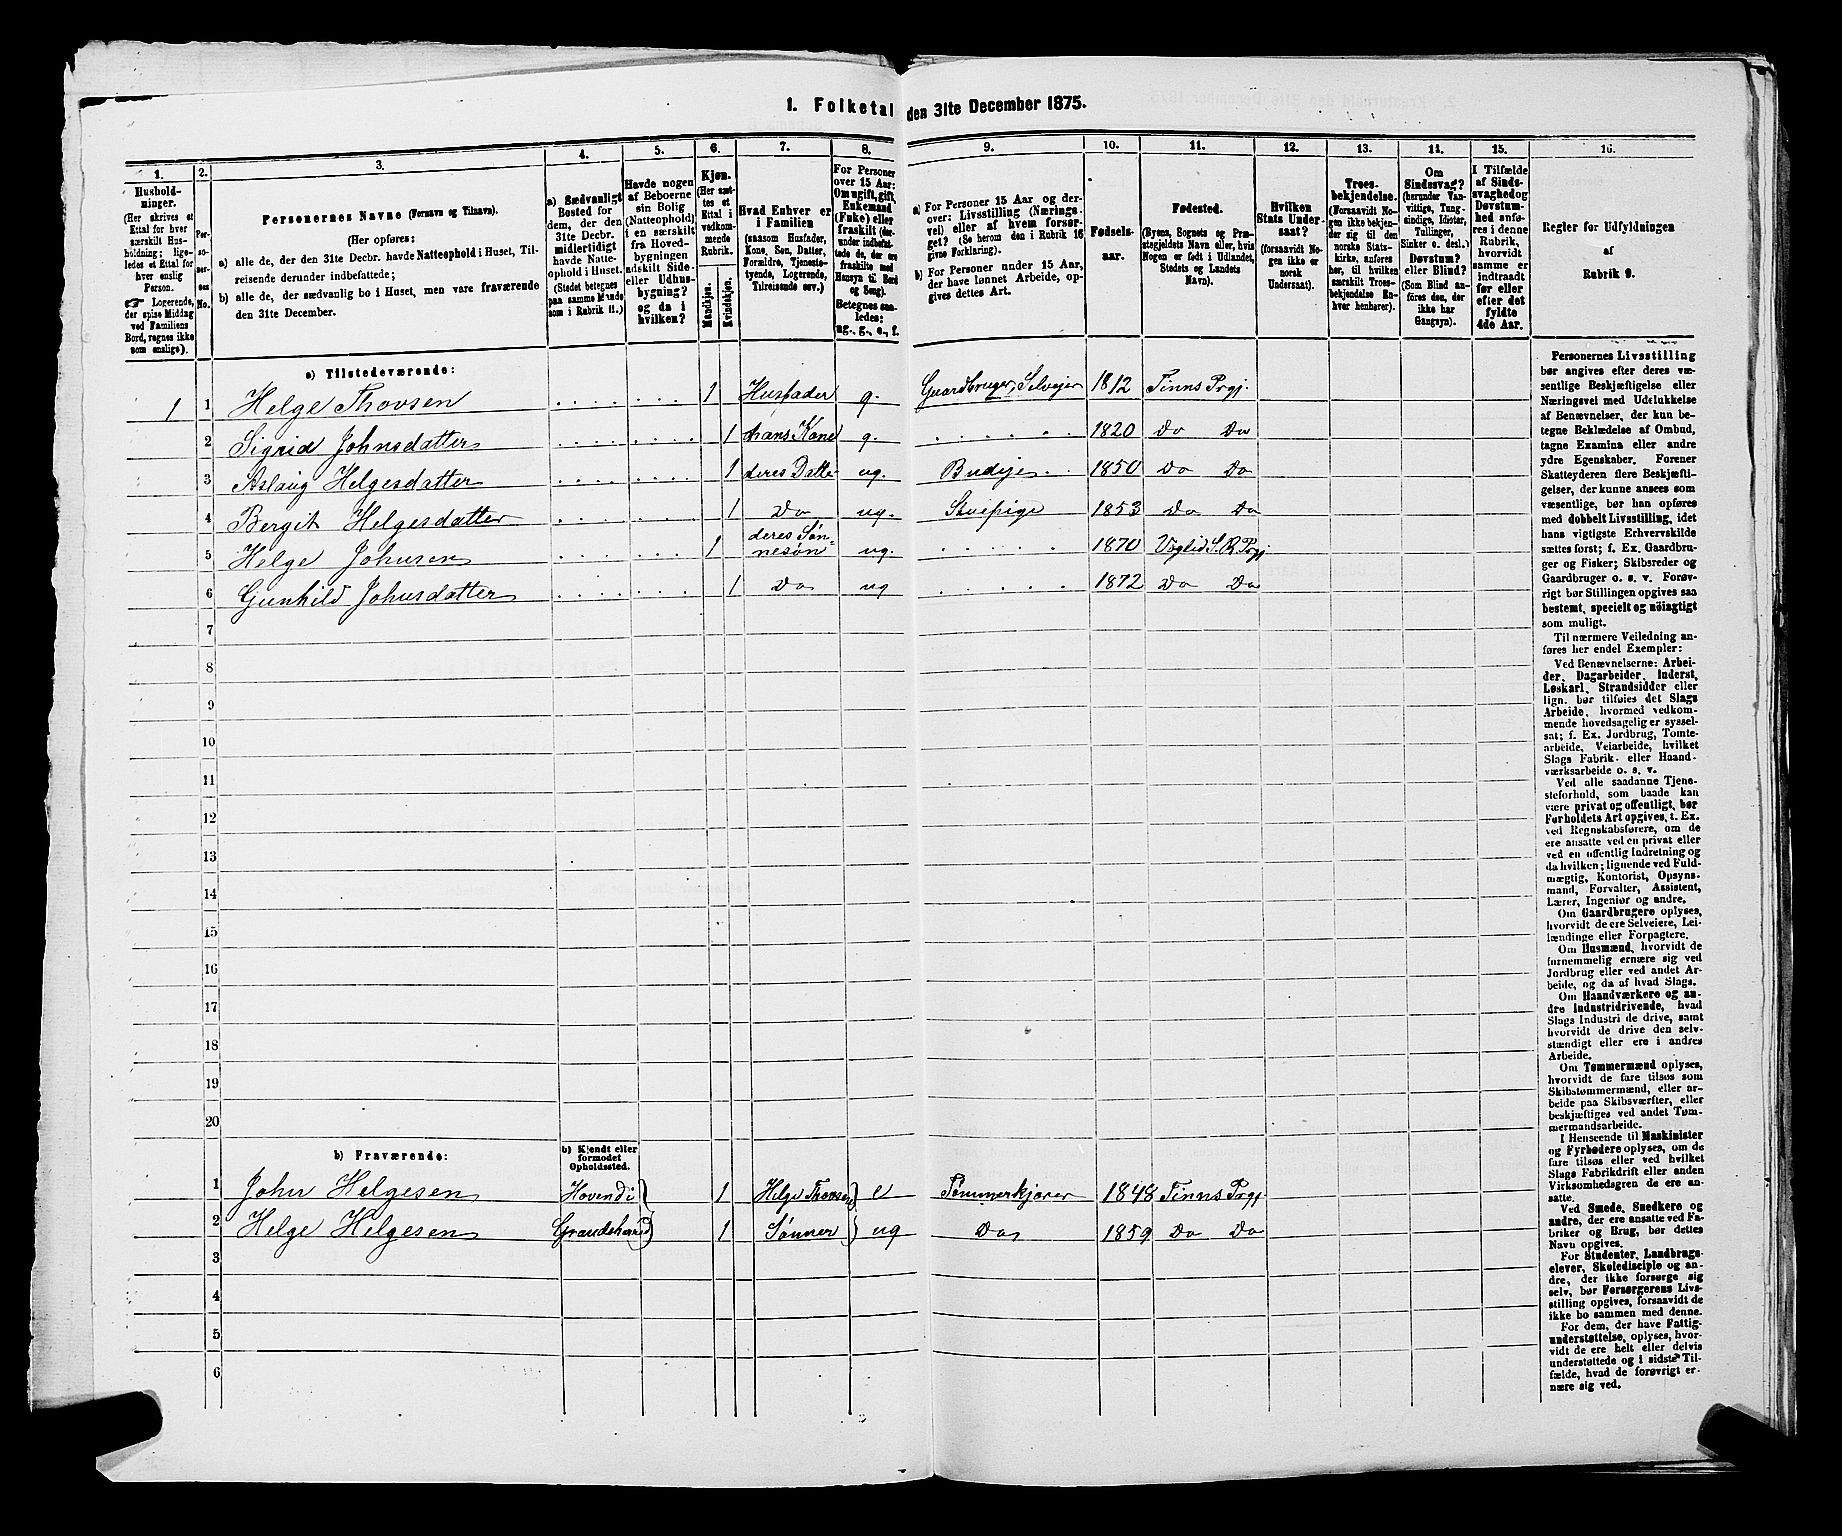 1. Folketal den 31te December 1875.
1. 2. 3. 4. 5. 6. 7. 8. 9. 10. 11. 12. 13. 14. 15. 16.
Hushold-
ninger.
(Her skrives et
Ettal for hver
særskilt Hus-
holdning; lige-
ledes et Ettal for
hver enslig
Person.
☞ Logerende,
der spise Middag
ved Familiens
Bord, regnes ikke
som enslige).
Per-
so-
ner-
nes
No.
Personernes Navne (Fornavn og Tilnavn).
(Her opføres:
a) alle de, der den 31te Decbr. havde Natteophold i Huset, Til-
reisende derunder indbefattede;
b) alle de, der sædvanlig bo i Huset, men vare fraværende
den 31te December.
a) Sædvanligt
Bosted for
dem, der den
31te Decbr.
midlertidigt
havde Natte-
ophold i Huset.
(Stedet betegnes
paa samme Maade
som i Rubrik 11.)
Havde nogen
af Beboerne
sin Bolig
(Natteophold)
i en særskilt
fra Hoved-
bygningen
adskilt Side-
eller Udhus-
bygning?
og da i
hvilken?
Kjøn.
(Her sæt-
tes et
Ettal i
vedkom-
mende
Rubrik.
Mandkjøn.
Kvindekjøn.
Hvad Enhver er
i Familien
(saasom Husfader,
Kone, Søn, Datter,
Forældre, Tjeneste-
tyende, Logerende,
Tilreisende osv.)
For Personer
over 15 Aar:
Om ugift, gift,
Enkemand
(Enke) eller
fraskilt (der-
under indbefat-
tede de, der ere
fraskilte med
Hensyn til Bord
og Seng).
Betegnes saa-
ledes:
ug., g., e., f.
a) For Personer 15 Aar og der-
over: Livsstilling (Nærings-
vei) eller af hvem forsør-
get? (Se herom den i Rubrik 16
givne Forklaring).
b) For Personer under 15 Aar,
der have lønnet Arbeide, op-
gives dettes Art.
Fødsels-
aar.
Fødested.
(Byens, Sognets og Præ-
stegjeldets Navn eller, hvis
Nogen er født i Udlandet,
Stedets og Landets
Navn).
Hvilken
Stats Under-
saat?
(forsaavidt No-
gen ikke er
norsk
Undersaat).
Troes-
bekjendelse.
(Forsaavidt No-
gen ikke bekjen-
der sig til den
norske Stats-
kirke, anføres
her, til hvilken
særskilt Troes-
bekjendelse En-
hver henhører).
Om
Sindssvag?
(herunder Van-
vittige, Tung-
sindige, Idioter,
Tullinger,
Sinker o. desl.)
Døvstum?
eller Blind?
(Som Blind an-
føres den, der
ikke har
Gangsyn).
I Tilfælde
af Sinds-
svaghed og
Døvstum-
hed anfø-
res i denne
Rubrik,
hvorvidt
samme er
indtraadt
før eller
efter det
fyldte
4de Aar.
Regler for Udfyldningen
af
Rubrik 9.
a) Tilstedeværende:
1 1 Helge Thovsen 1 Husfader g. Gaardbruger, Selvejer 1812 Tinns Prgj.
2 Sigrid Johnsdatter 1 hans Kone g. 1820 Do Do
3 Aslaug Helgesdatter 1 deres Datte ug. Budeje 1850 Do Do
4 Bergit Helgesdatter 1 Do ug. 1853 Do Do
5 Helge Johnsen 1 deres Søn-
nesøn ug. 1870 Prgj
6 Gunhild Johnsdatter 1 Do ug 1872 Do Do
7
8
9
10
11
12
13
14
15
16
17
18
19
20
b) Fraværende:
b) Kjendt eller
formodet
Opholdssted.
1 John Helgesen Hovendi 1 Helge Thovsen e Tømmerkjører 1848 Tinns Prgj
2 Helge Helgesen Grandsherred 1 Sønner ug Do 1859 Do Do
3
4
5
6
Personernes Livsstilling
bør angives efter deres væ-
sentlige Beskjæftigelse eller
Næringsvei med Udelukkelse
af Benævnelser, der kun be-
tegne Beklædelse af Ombud,
tagne Examina eller andre
ydre Egenskaber. Forener
Skatteyderen flere Beskjæfti-
gelser, der kunne ansees som
væsentlige, bør han opføres
med dobbelt Livsstilling, idet
hans vigtigste Erhvervskilde
sættes først; f. Ex. Gaardbru-
ger og Fisker; Skibsreder og
Gaardbruger o. s. v. Forøv-
rigt bør Stillingen opgives saa
bestemt, specielt og nøiagtigt
som muligt.
Til nærmere Veiledning an-
føres her endel Exempler:
Ved Benævnelserne: Arbei-
der, Dagarbeider, Inderst,
Løskarl, Strandsidder eller
lign. bør tilføies det Slags
Arbeide, hvormed vedkom-
mende hovedsagelig er syssel-
sat; f. Ex. Jordbrug, Tomte-
arbeide, Veiarbeide, hvilket
Slags Fabrik- eller Haand-
værksarbeide o. s. v.
Ved alle saadanne Tjene-
steforhold, som baade kan
være privat og offentligt, bør
Forholdets Art opgives, t. Ex.
ved Regnskabsførere, om de
ere ansatte ved en privat eller
ved en offentlig Indretning og
da hvilken; lignende ved Fuld-
mægtig, Kontorist, Opsyns-
mand, Forvalter, Assistent,
Lærer, Ingeniør og andre.
Om Gaardbrugere oplyses,
hvorvidt de ere Selveiere, Lei-
lændinge eller Forpagtere.
Om Husmænd, hvorvidt de
fornemmelig ernære sig ved
Jordbrug eller ved andet Ar-
beide, og da af hvad Slags.
Om Haandværkere og an-
dre Industridrivende, hvad
Slags Industri de drive, samt
hvorvidt de drive den selv-
stændigt eller ere i andres
Arbeide.
Om Tømmermænd oplyses,
hvorvidt de fare tilsøs som
Skibstømmermænd, eller ar-
beide paa Skibsværfter, eller
beskjæftiges ved andet Tøm-
mermandsarbeide.
I Henseende til Maskinister
og Fyrbødere oplyses, om de
fare tilsøs eller ved hvilket
Slags Fabrikdrift eller anden
Virksomhedsgren de ere an-
satte.
Ved Smede, Snedkere og
andre, der ere ansatte ved Fa-
briker og Brug, bør dettes
Navn opgives.
For Studenter, Landbrugs-
elever, Skoledisciple og an-
dre, der ikke forsørge sig
selv, bør Forsørgerens Livs-
stilling opgives, forsaavidt de
ikke bo sammen med denne.
For dem, der have Fattig-
understøttelse, oplyses, hvor-
vidt de ere helt eller delvis
understøttede og i sidste Til-
fælde, hvad de forøvrigt er-
nære sig ved.